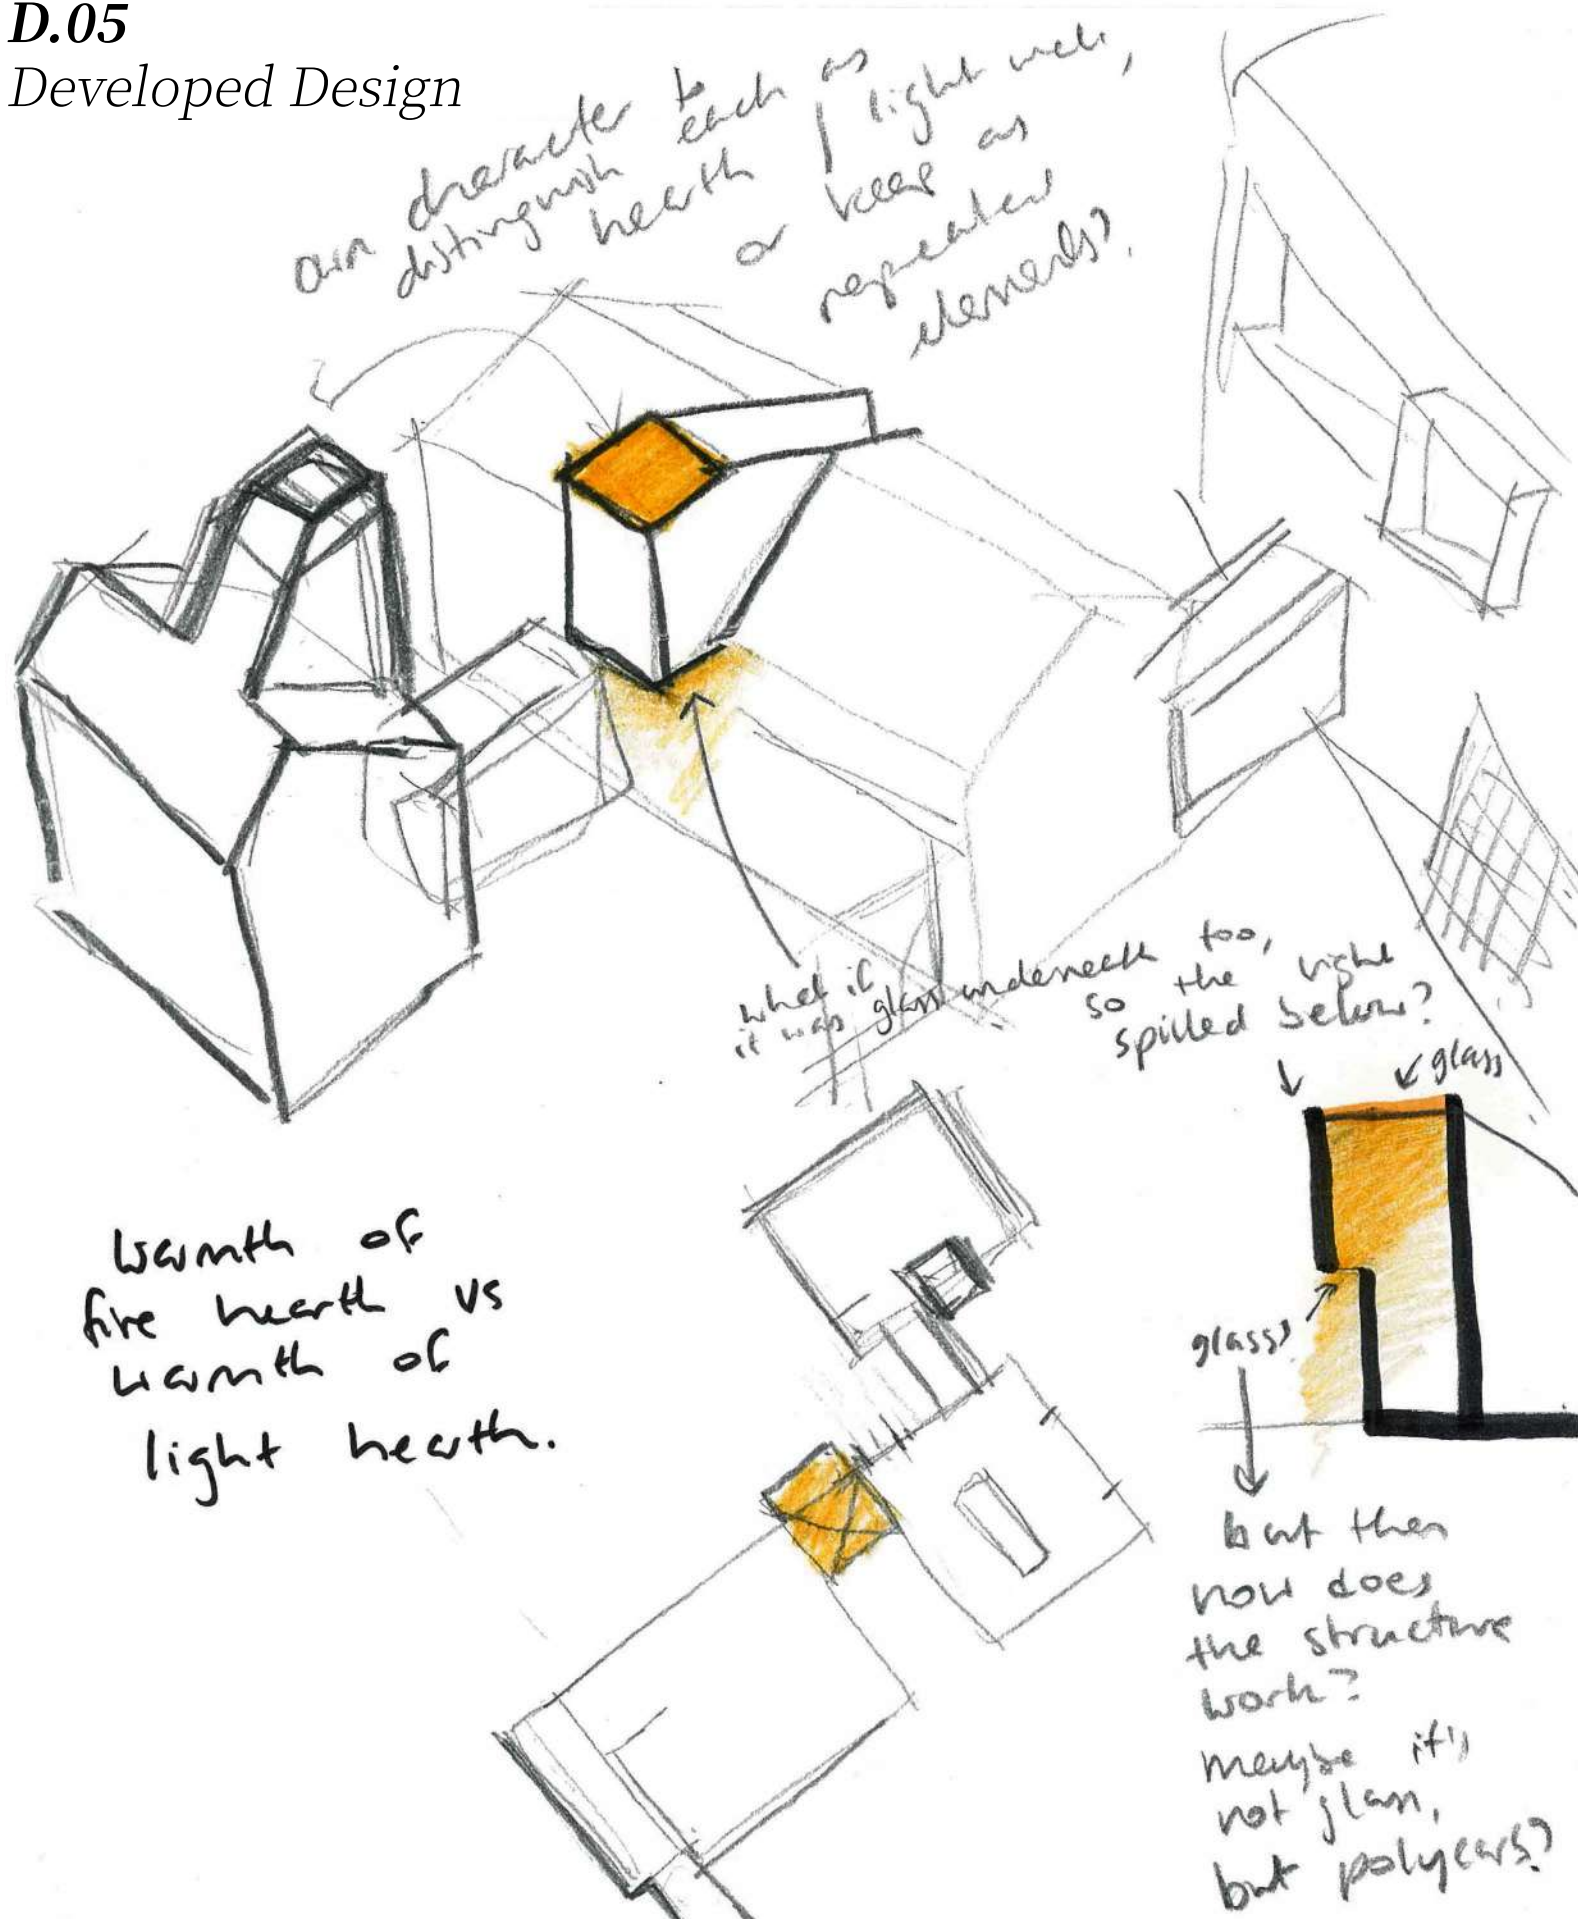 D.05
Developed Design
own character to
distinguish each as
hearth / light well,
or keep as
repeated
elements?
what if
it was glass underneath too,
so the light
spilled below?
glass
warmth of
fire hearth vs
warmth of
light hearth.
glass?
but then
how does
the structure
work?
maybe it's
not glass,
but polycarb?